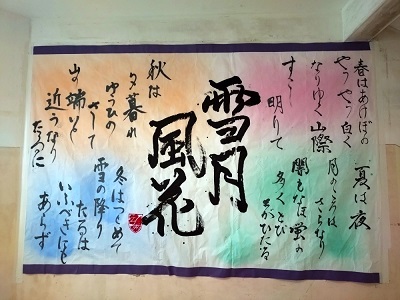 春はあけぼの
やうやう白く
なりゆく山際
すこし
明りて
夏は夜
月のころは
さらなり
闇もなほ蛍の
多くとび
ちがひたる
雪月
風花
秋は
夕暮れ
ゆうひの
さして
山の端いと
近うなり
たるに
冬はつとめて
雪の降り
たるは
いふべきにも
あらず